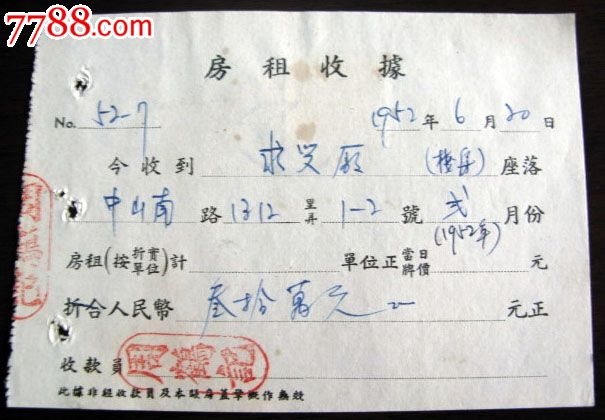 7788.com
房租收據
No. 52-7 1952年6月20日
今收到 求 厰 座落
中山南路1312里弄1-2號 弍月份
(1952年)
房租(按折實單位)計 單位正當日牌價 元
折合人民幣 叁拾萬元 元正
收款員 周鶴記
周鶴記
此據非經收款員及本賬房蓋章概作無效